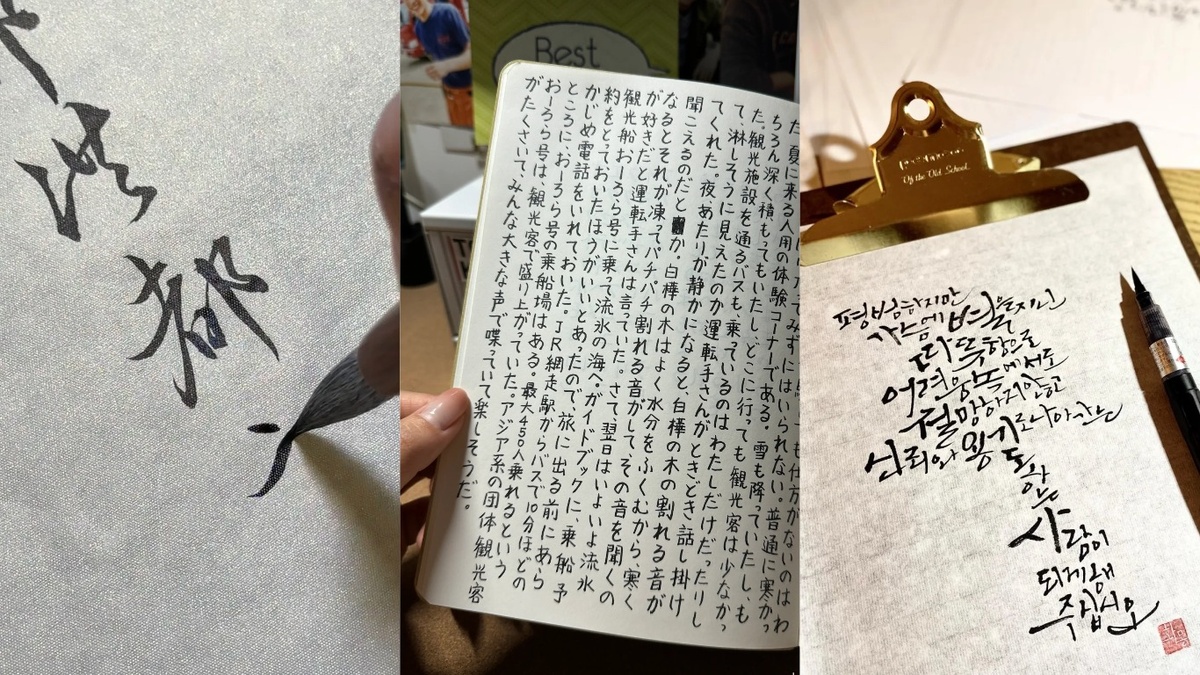 都
Best
てみずにはいられない。普通に寒かっ
た 夏に来る人用の体験コーナーである。雪も降っていたし、も
ちろん深く積もってもいたし、どこに行っても観光客は少なかっ
た。観光施設を通るバスも、乗っているのはわたしだけだったりし
て、淋しそうに見えたのか運転手さんがときどき話し掛け
てくれた。夜、あたりが静かになると、白樺の木の割れる音が
聞こえるのだとか。白樺の木はよく水分をふくむから、寒く
なるとそれが凍ってパチパチ割れる音がして、その音を聞くの
が好きだと運転手さんは言っていた。さて翌日はいよいよ流氷
観光船おーろら号に乗って流氷の海へ。ガイドブックに、乗船予
約をとっておいたほうがいいとあったので、旅に出る前にあら
かじめ電話をいれておいた。JR網走駅からバスで10分ほどの
ところに、おーろら号の乗船場はある。最大450人乗れるという
おーろら号は、観光客で盛り上がっていた。アジア系の団体観光客
がたくさんいて、みんな大きな声で喋っていて楽しそうだ。
Of the Old School
평범하지만
가슴에 별을 지닌
따뜻함으로
어려움 속에서도
절망하지 않고
신뢰와 용기로 나아가는
사람이
되게 해
주십시오